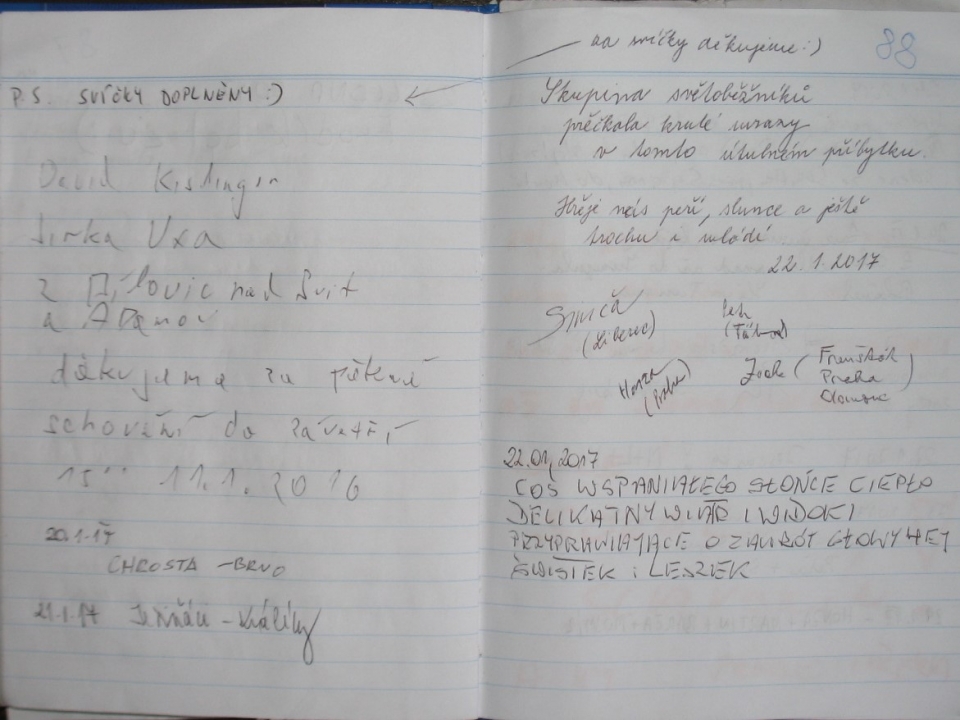 P.S. SVÍČKY DOPLNĚNY :)
David Kislinger
Jirka Vxa
z Bílovic nad Svit
a Adamov
děkujeme za pěkné
schování do závětří
15°° 11.1.2016
20.1.17
CHROSTA - BRNO
21.1.17 - Králíky
88
za svíčky děkujeme :)
Skupina světoběžníků
přečkala kruté mrazy
v tomto útulném příbytku.
Hřeje nás peří, slunce a ještě
trochu i mládí
22.1.2017
(Liberec)
(Tábor)
Honza
(Praha)
Praha
Olomouc
22.01.2017
COŚ WSPANIAŁEGO SŁOŃCE CIEPŁO
DELIKATNY WIATR I WIDOKI
PRZYPRAWIAJĄCE O ZAWRÓT GŁOWY HEJ
ŚWISTEK i LESZEK